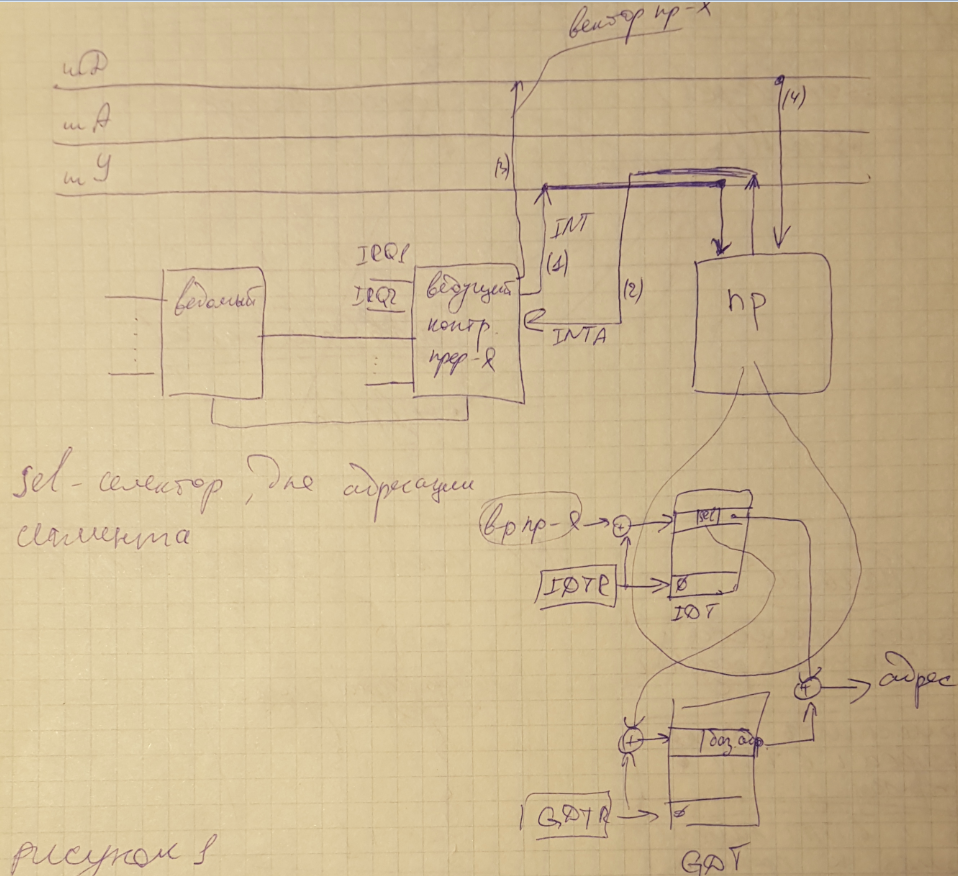 вектор пр-я
ш Д
ш А
ш У
(3)
(4)
INT
(1)
(2)
IRQ1
IRQ2
ведомый
ведущий
контр.
прер-я
INTA
пр
sel - селектор, для адресации
сегмента
в-р пр-я
sel
IDTR
0
IDT
адрес
баз адр
GDTR
0
GDT
рисунок 1